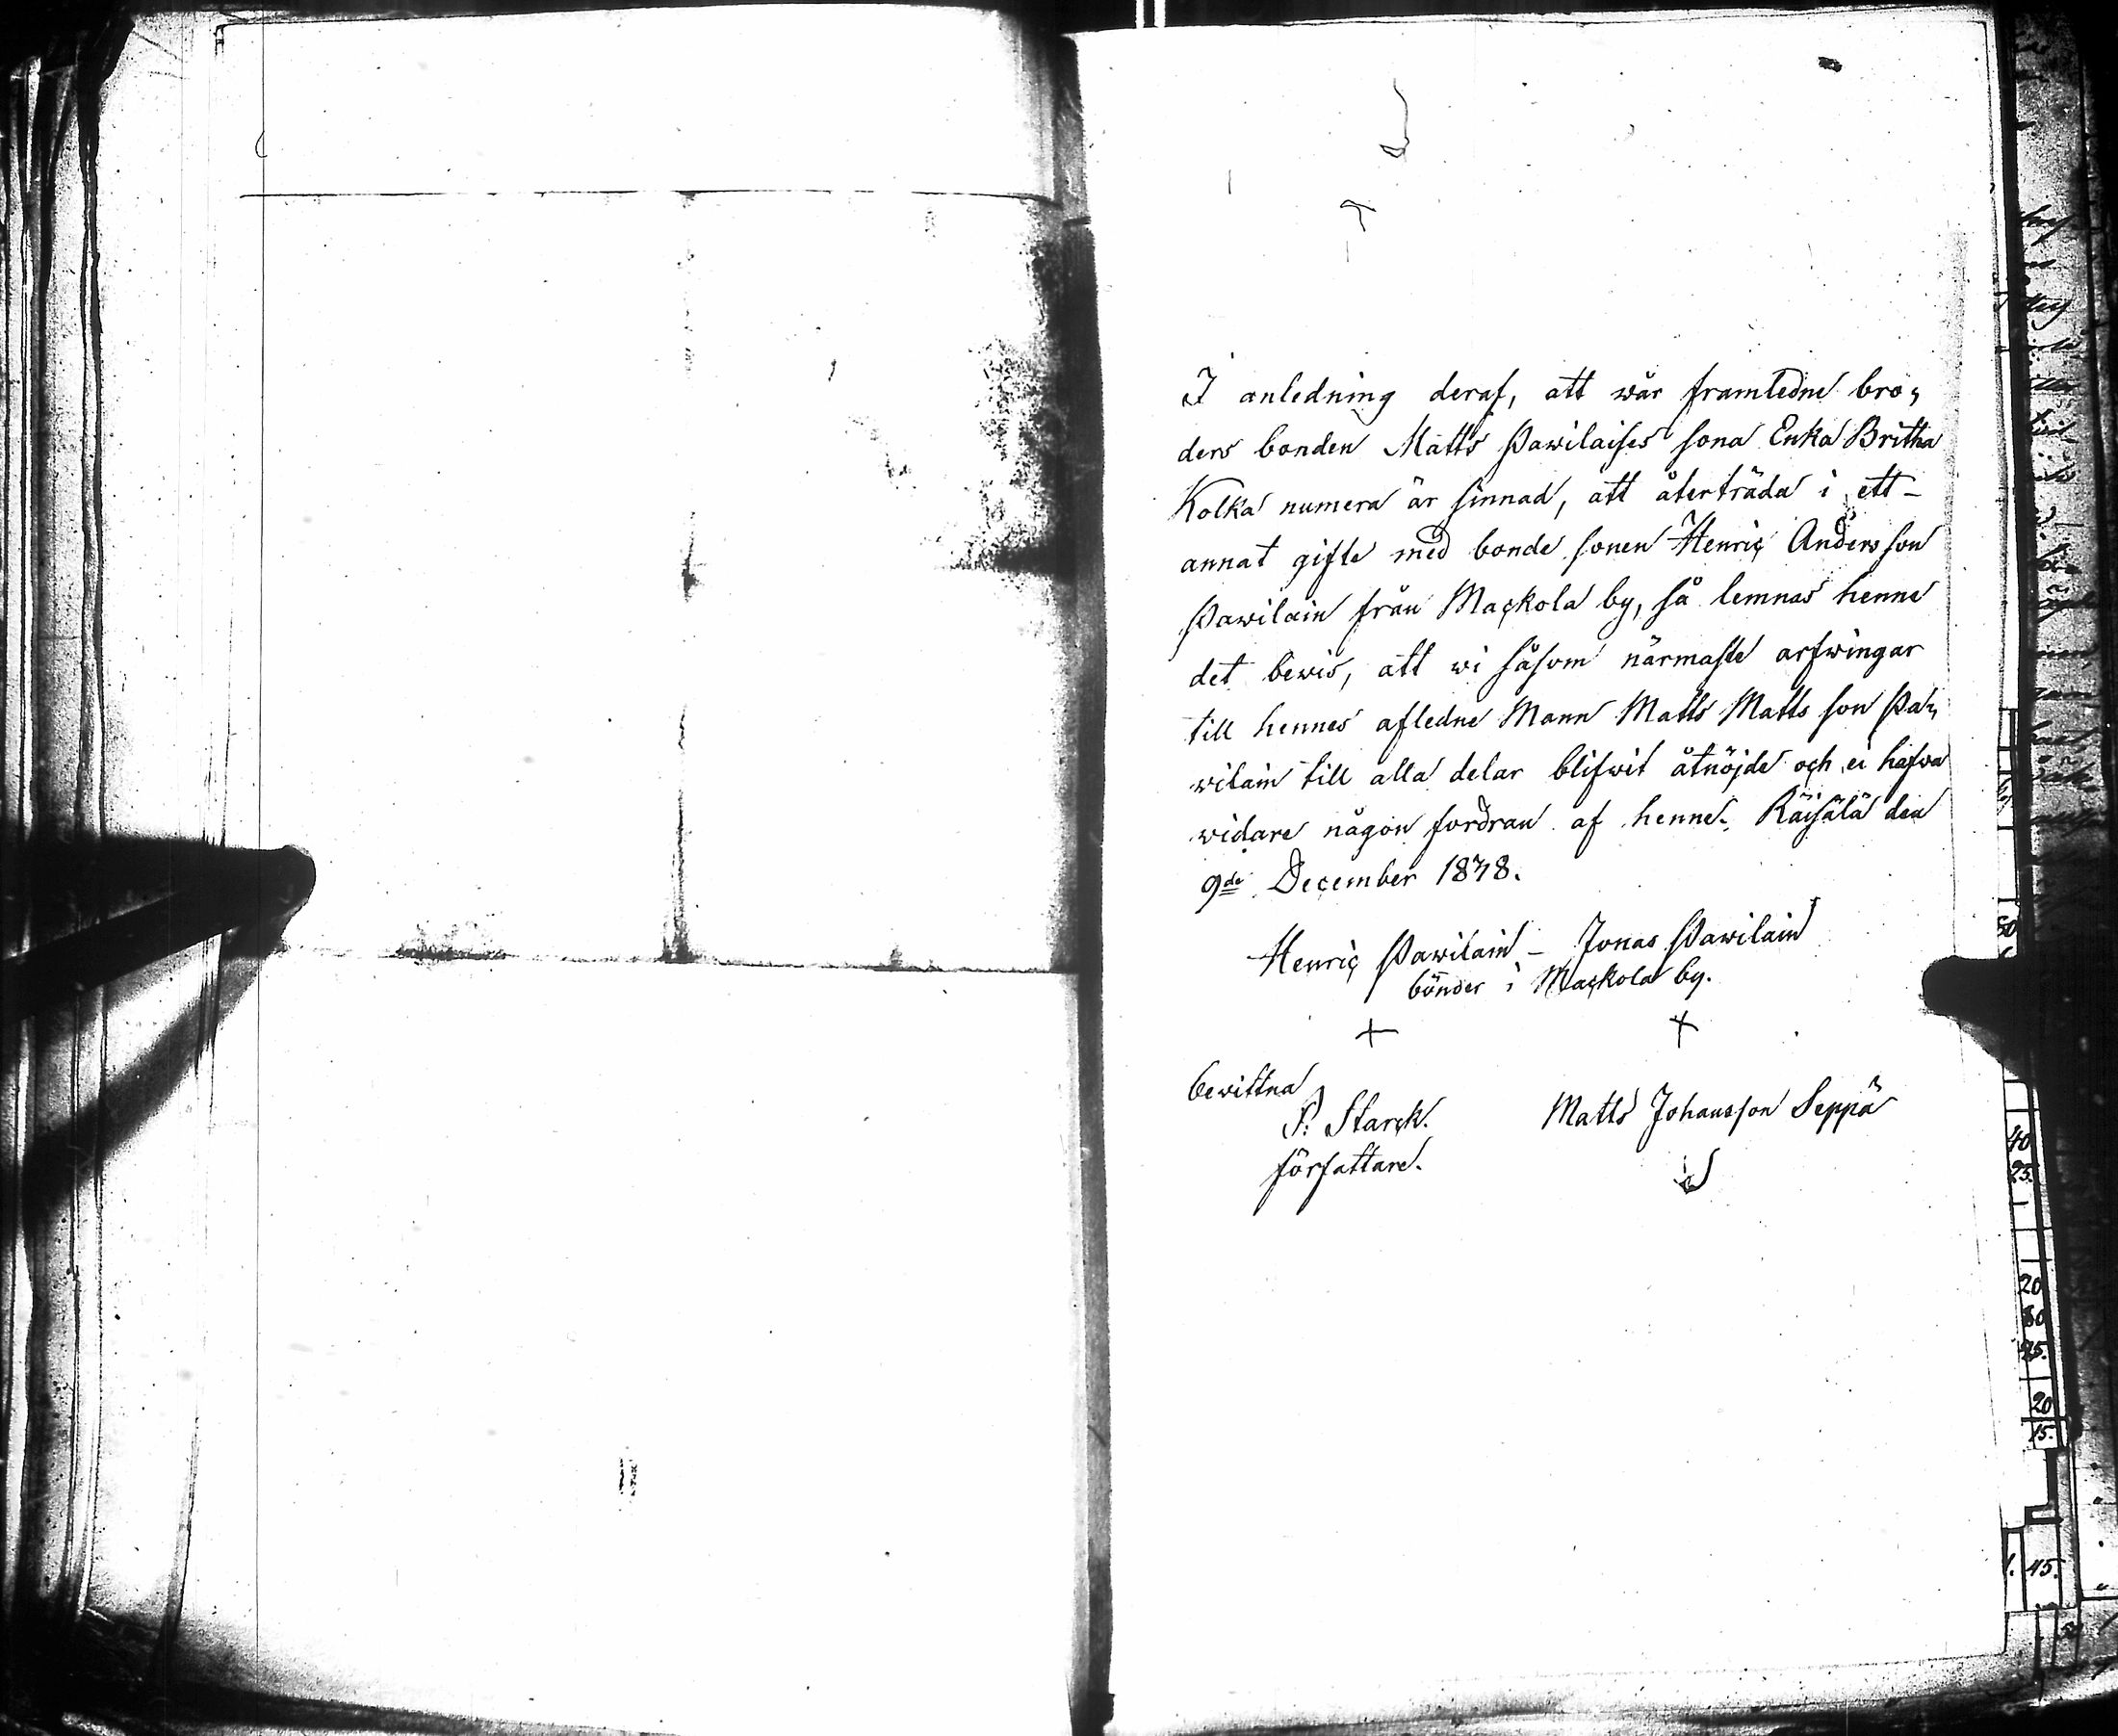 I anledning deraf, att wår framledne bro,
ders bonden Matts Pawilaises sona Enka Britha
Kolka numera är sinnad, att återträda i ett
annat gifte med bonde sonen Henric Andersson
Pawilain från Mackola by, så lemnas henne
det bewis, att wi såsom närmaste arfwingar
till hennes afledne Mann Matts Matts son Pa,
wilain till alla delar blifwit åtnöjde och ei hafwa
widare någon fordran af henne. Räisälä den
9de December 1838.
Henric Pawilain - Jonas Pawilain
bönder i Mackola by.
+ +
bewittna
P. Starck. Matts Johansson Seppä
författare.
40
25.
20
80
25.
20
15.
1. 45.